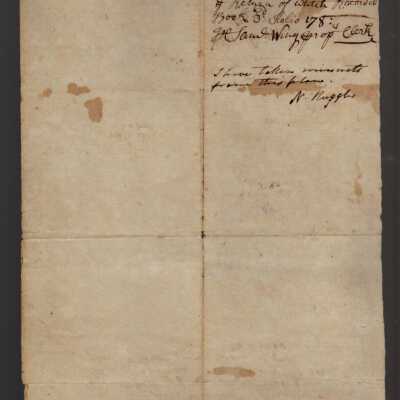 & Return of which Recorded
Book 3d folio 178:
p Saml Wing Prop Clerk
I have taken minnits
from this plan.
N. Ruggles